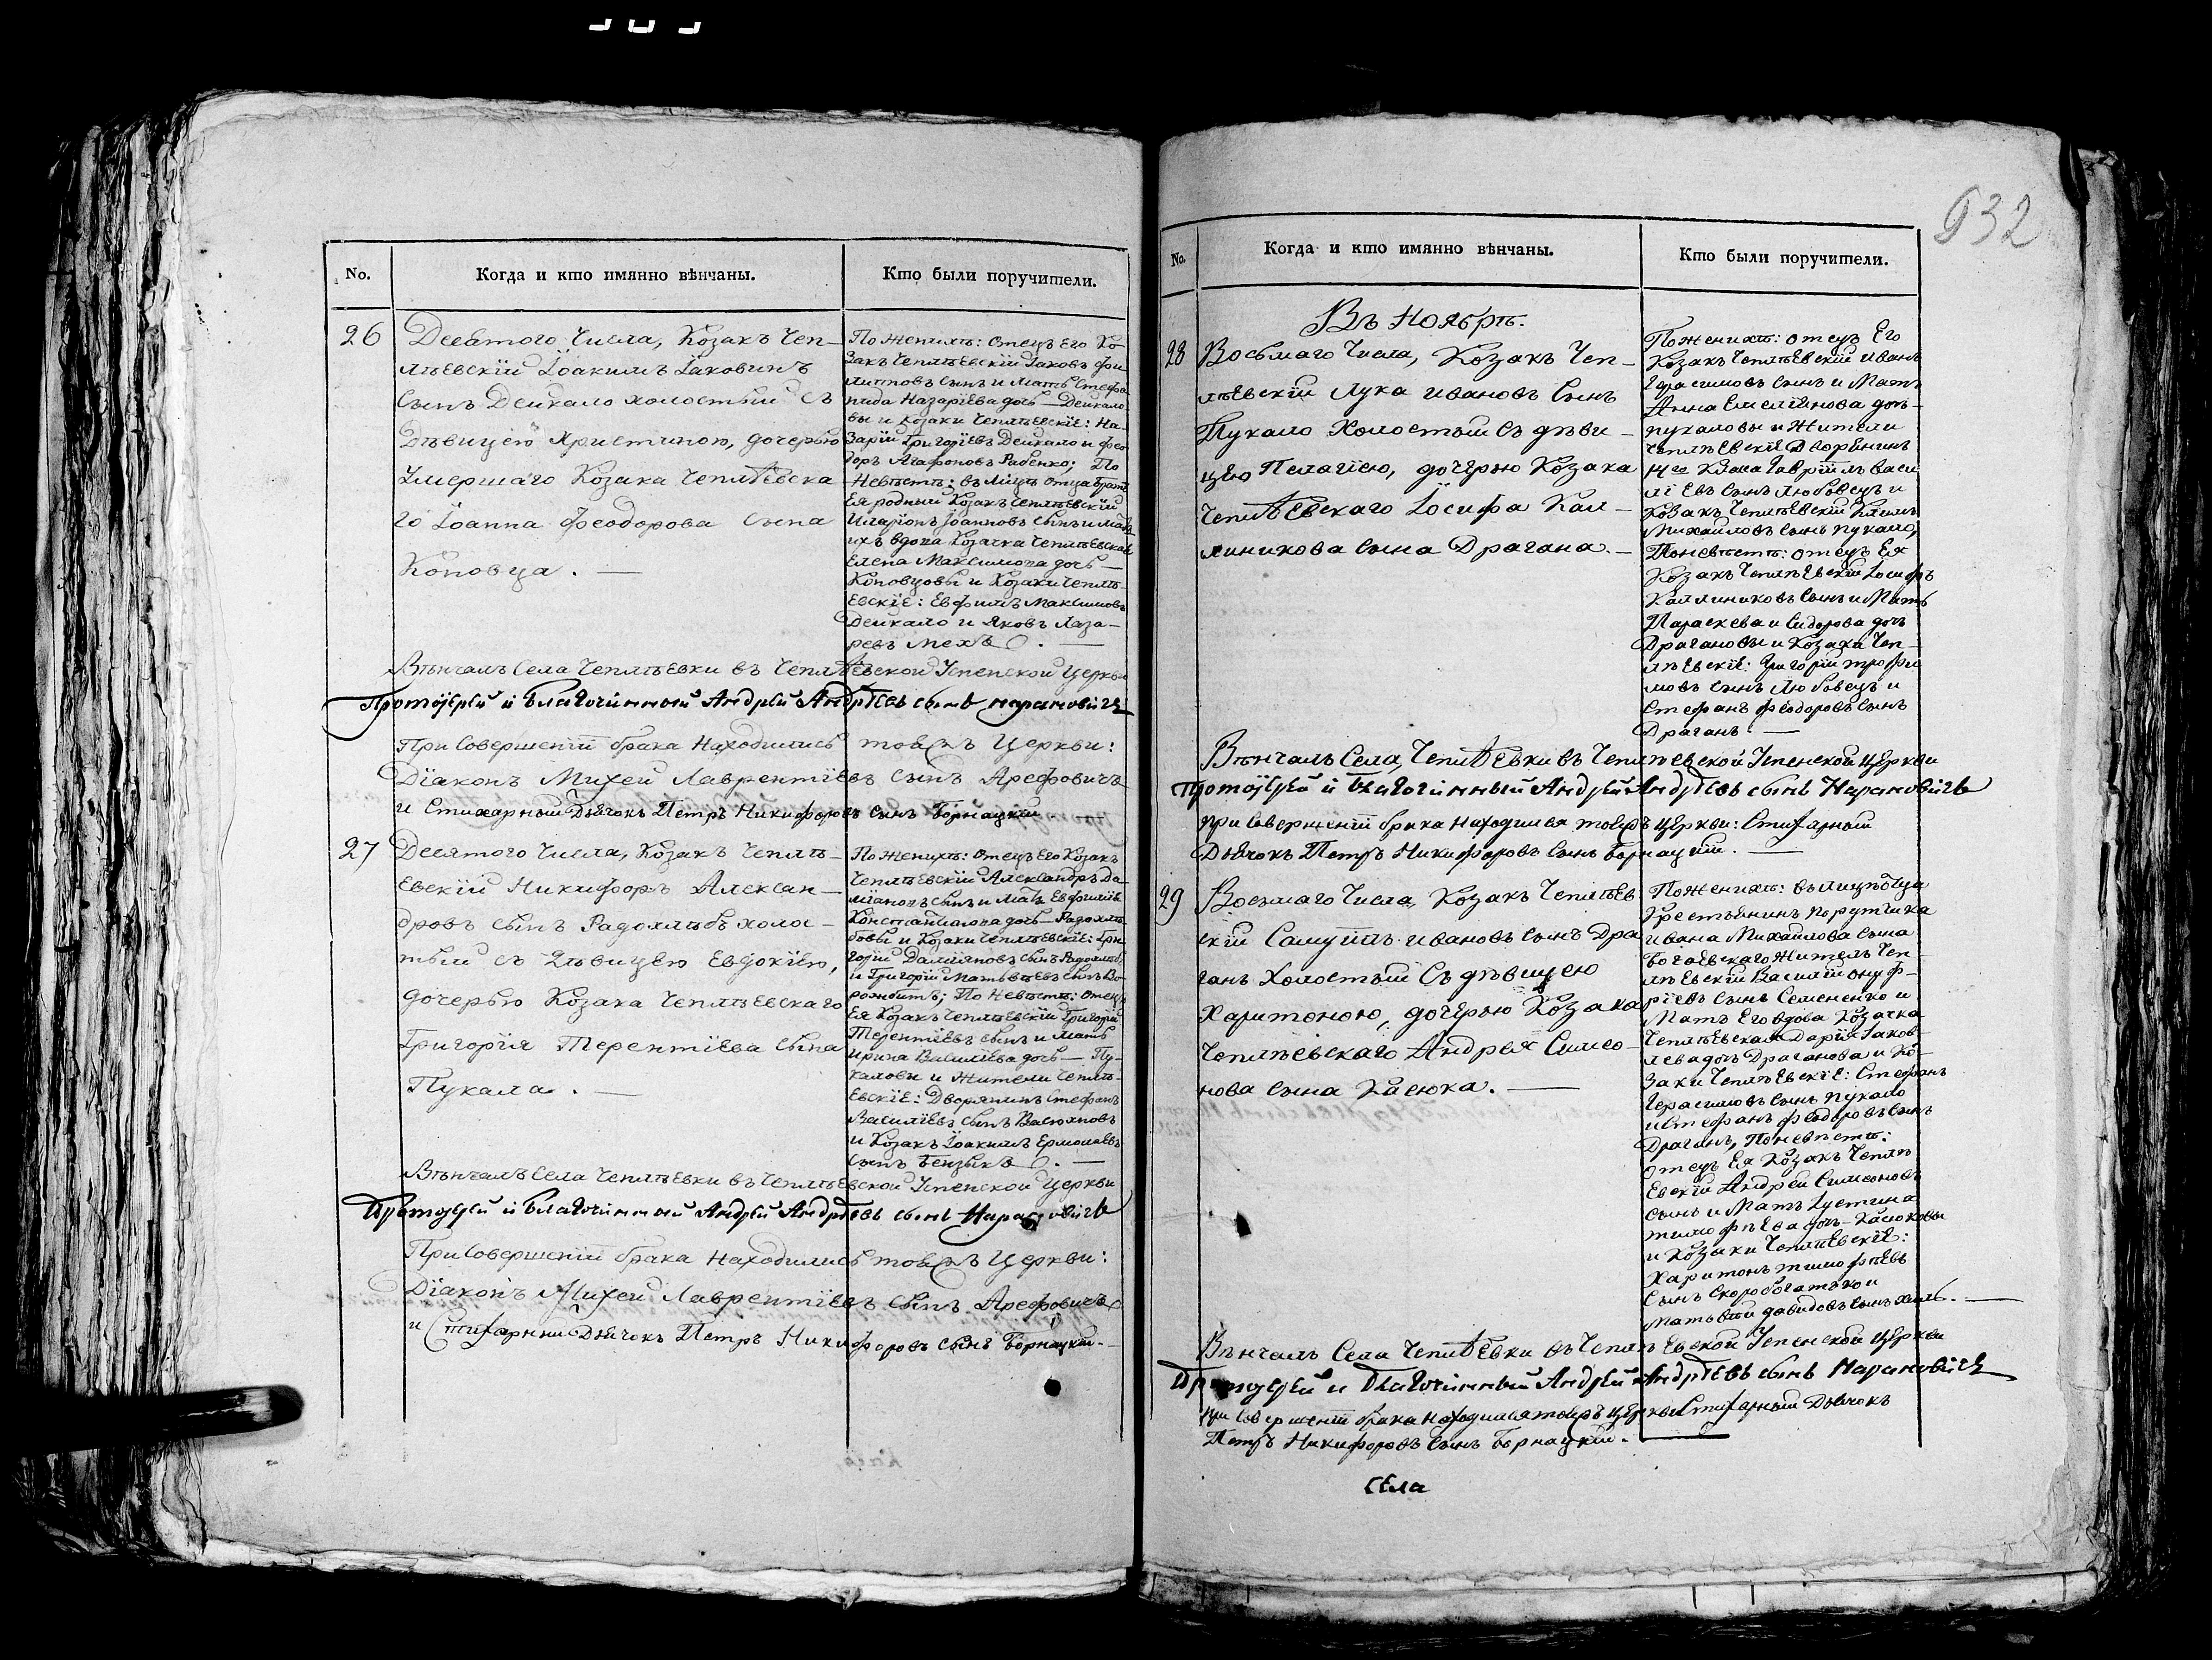 932
No.
Когда и кто имянно вѣнчаны.
Кто были поручители.
26
Десятого Числа, Козакъ Чеп-
лѣевскій Іоакимъ Іаковичъ
Сынъ Дейкало холостый съ
Дѣвицею Христиною, дочерью
Умершаго Козака Чеплѣевска
го Іоанна Феодорова сына
Коповца. —
По Женихѣ: отецъ его Ко-
закъ Чеплѣевскій Іаковъ Фи
липповъ сынъ и мать Стефа
нида Назаріева дочь — Дейкало
вы и Козаки Чеплѣевскіе: На-
зарій Григоріевъ Дейкало и Фео
доръ Агафоновъ Рабенко; По
Невѣстѣ: въ мѣсто отца братъ
Ея родный Козакъ Чеплѣевскій
Иларіонъ Іоанновъ сынъ и мать
ихъ вдова Козачка Чеплѣевская
Елена Максимова дочь —
Коповцовы и Козаки Чеплѣ-
евскіе: Евфимъ Максимовъ
Дейкало и Яковъ Лаза-
ревъ Мехъ. —
Вѣнчалъ Села Чеплѣевки въ Чеплѣевской Успенской Церкви
Протоіерей и Благочинный Андрей Андрѣевъ сынъ Нарановичъ
При Совершеніи брака находились тоей Церкви:
Діаконъ Михей Лаврентіевъ сынъ Арефовичъ
и Стихарный Дьячокъ Петръ Никифоровъ сынъ Борнацкій
27
Десятого Числа, Козакъ Чеплѣ-
евскій Никифоръ Алексан-
дровъ сынъ Радохлѣбъ холос-
тый съ дѣвицею Евдокіею,
дочерью Козака Чеплѣевскаго
Григорія Терентіева сына
Пукала. —
По Женихѣ: отецъ его Козакъ
Чеплѣевскій Александръ Да-
міановъ сынъ и мать Евфимія
Константинова дочь — Радохлѣ-
бовы и Козаки Чеплѣевскіе: Гри
горій Даміяновъ сынъ Радохлѣбъ
и Григорій Матвѣевъ сынъ Во-
рожбитъ; По Невѣстѣ: отецъ
Ея Козакъ Чеплѣевскій Григорій
Терентіевъ сынъ и мать
Ирина Василіева дочь — Пу-
каловы и Жители Чеплѣ-
евскіе: Дворянинъ Стефанъ
Василіевъ сынъ Васюхновъ
и Козакъ Іоакимъ Ермолаевъ
сынъ Бензыкъ. —
Вѣнчалъ Села Чеплѣевки въ Чеплѣевской Успенской Церкви
Протоіерей и Благочинный Андрей Андрѣевъ сынъ Нарановичъ
При Совершеніи брака находились тоей Церкви:
Діаконъ Михей Лаврентіевъ сынъ Арефовичъ
и Стихарный Дьячокъ Петръ Никифоровъ сынъ Борнацкій. —
No.
Когда и кто имянно вѣнчаны.
Кто были поручители.
Въ Ноябрѣ.
28
Восьмаго Числа, Козакъ Чеп-
лѣевскій Лука Ивановъ сынъ
Пукало Холостый съ дѣви-
цею Пелагіею, дочерью Козака
Чеплѣевскаго Іосифа Кал-
линикова сына Драгана. —
По женихѣ: отецъ Его
Козакъ Чеплѣевскій Иванъ
Герасимовъ сынъ и Мать
Анна Емеліянова дочь-
пукаловы и Жители
Чеплѣевскіе Дворянинъ
14го Класа Гавріилъ Васи
ліевъ сынъ Любовецъ и
Козакъ Чеплѣевскій Климъ
Михайловъ сынъ пукало,
По невѣстѣ: отецъ Ея
Козакъ Чеплѣевскій Іосифъ
Каллиниковъ сынъ и Мать
Параскева и Сидорова дочь
Драгановы и Козаки Чеп-
лѣевскіе: Григорій трофи
мовъ сынъ Любовецъ и
Стефанъ Феодоровъ сынъ
Драганъ. —
Вѣнчалъ Села, Чеплѣевки въ Чеплѣевской Успенской Церкви
Протоіерей и Благочинный Андрей Андрѣевъ сынъ Нарановичъ
при совершеніи брака находился тоей Церкви: Стихарный
Дьячокъ Петръ Никифоровъ сынъ Борнацкій. —
29
Восьмаго Числа, Козакъ Чеплѣев
скій Самуилъ Ивановъ сынъ Дра
ганъ Холостый Съ дѣвицею
Харитоною, дочерью Козака
Чеплѣевскаго Андрея Симео-
нова сына Касюка. —
По Женихѣ: въ мѣсто отца
Крестьянинъ порутчика
Ивана Михайлова сына
Богаевскаго Житель Чеп-
лѣевскій Василій Онуф-
ріевъ сынъ Семененко и
Мать Его вдова Козачка
Чеплѣевская Дарія Іаков-
лева дочь Драганова и Ко-
заки Чеплѣевскіе: Стефанъ
Герасимовъ сынъ Пукало
и Стефанъ Феодоровъ сынъ
Драганъ, По невѣстѣ:
отецъ Ея Козакъ Чеплѣ
евскій Андрей Симеоновъ
сынъ и Мать Іустина
тимофѣева дочь-Касюковы
и Козаки Чеплѣевскіе:
Харитонъ тимофѣевъ
сынъ Скоробогатько и
Матвѣй давидовъ сынъ Хмѣль. —
Вѣнчалъ Села Чеплѣевки въ Чеплѣевской Успенской Церкви
Протоіерей и Благочинный Андрей Андрѣевъ сынъ Нарановичъ
при совершеніи брака находился тоей Церкви Стихарный Дьячокъ
Петръ Никифоровъ сынъ Борнацкій.
Села